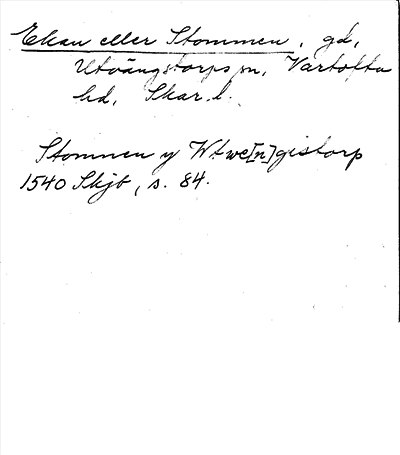 Ekan eller Stommen, gd,
Utvängstorps sn, Vartofta
hd, Skar. l.
Stommen y Wtwe[n]gistorp
1540 Skjb, s. 84.